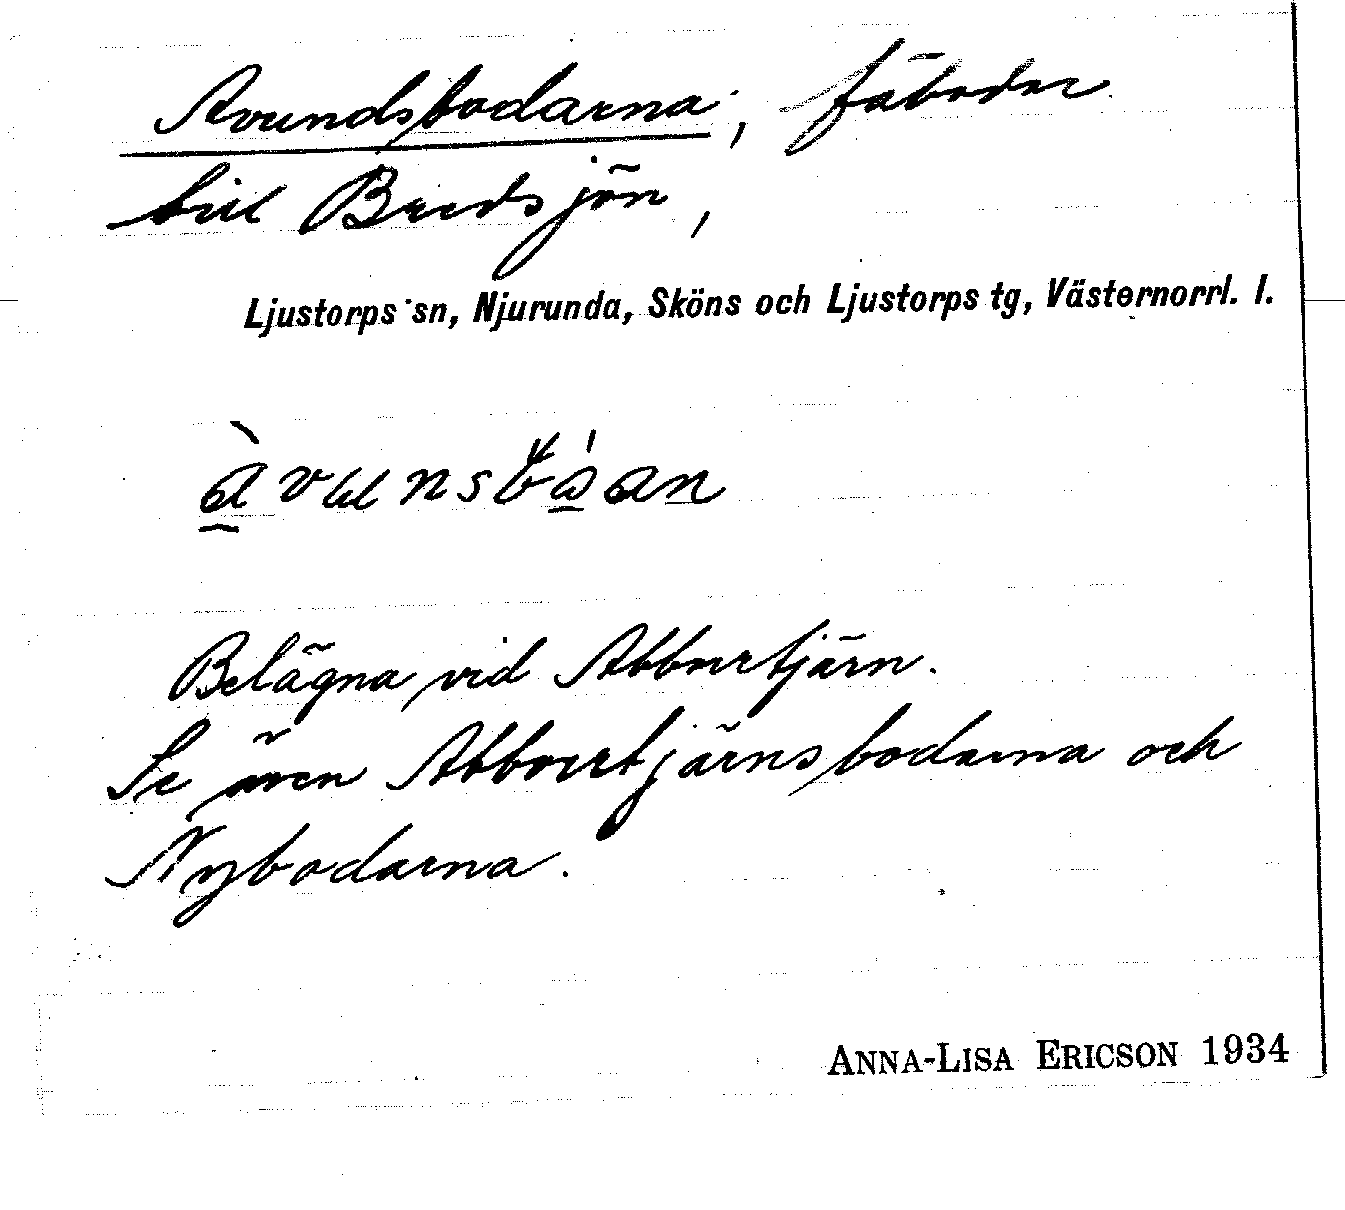 Avundsbodarna, fäbodar
till Bredsjön,
Ljustorps sn, Njurunda, Sköns och Ljustorps tg, Västernorrl. l.
Belägna vid Abborrtjärn.
Se även Abborrtjärnsbodarna och
Nybodarna.
ANNA-LISA ERICSON 1934